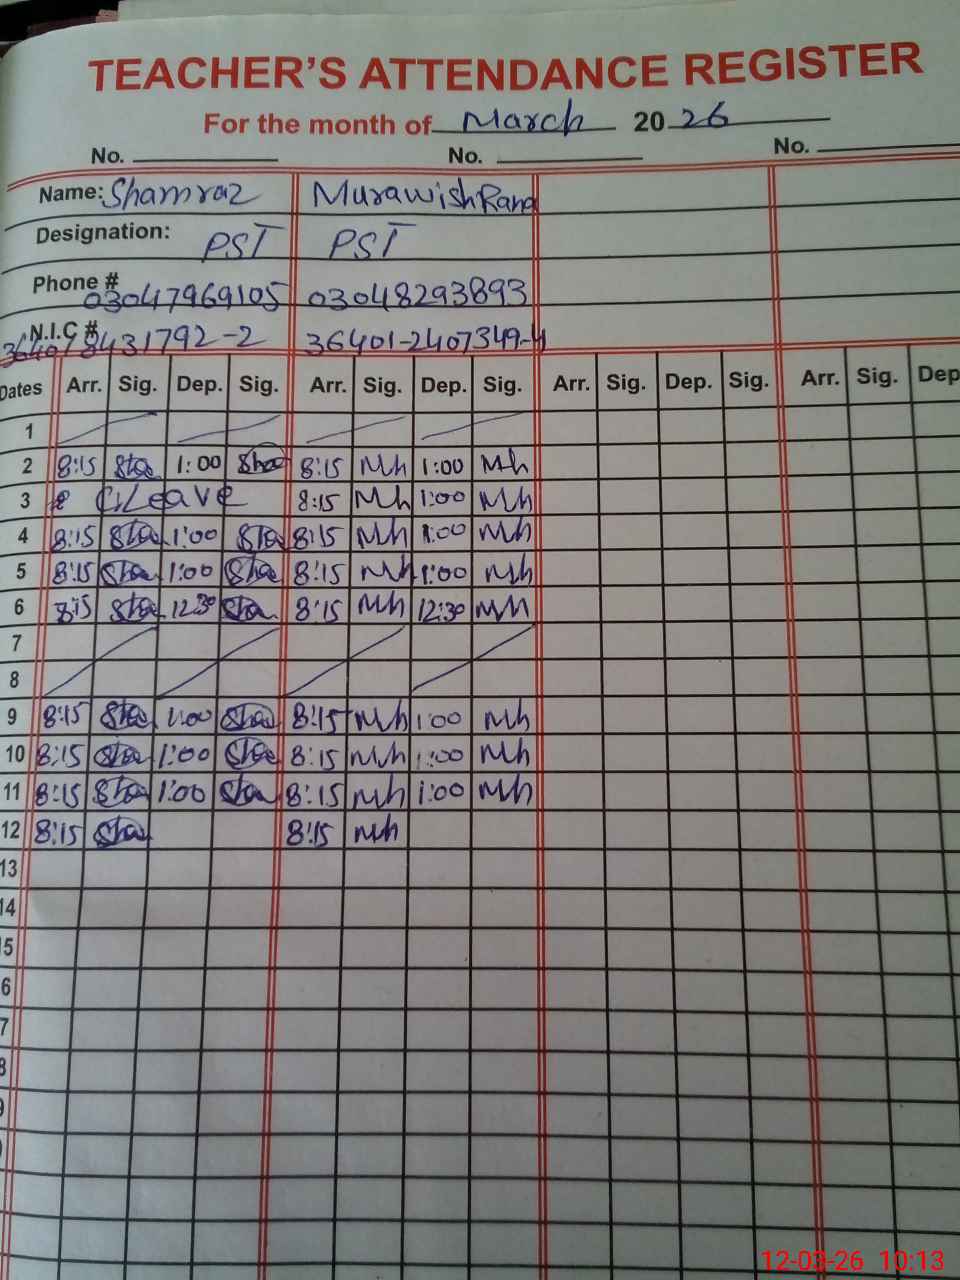 TEACHER'S ATTENDANCE REGISTER
For the month of March 2026
No. No. No.
Name: Shamraz Murawish Rana
Designation: PST PST
Phone # 03047969105 03048293893
N.I.C # 36401-2407349-4
Dates Arr. Sig. Dep. Sig. Arr. Sig. Dep. Sig. Arr. Sig. Dep. Sig. Arr. Sig. Dep
1
2 8:15 Sha 1:00 Sha 8:15 Mh 1:00 Mh
3 C.Leave 8:15 Mh 1:00 Mh
4 8:15 Sha 1:00 Sha 8:15 Mh 1:00 Mh
5 8:15 Sha 1:00 Sha 8:15 Mh 1:00 Mh
6 8:15 Sha 12:30 Sha 8:15 Mh 12:30 Mh
7
8
9 8:15 Sha 1:00 Sha 8:15 Mh 1:00 Mh
10 8:15 Sha 1:00 Sha 8:15 Mh 1:00 Mh
11 8:15 Sha 1:00 Sha 8:15 Mh 1:00 Mh
12 8:15 Sha 8:15 Mh
13
14
5
6
7
8
9
12-03-26 10:13